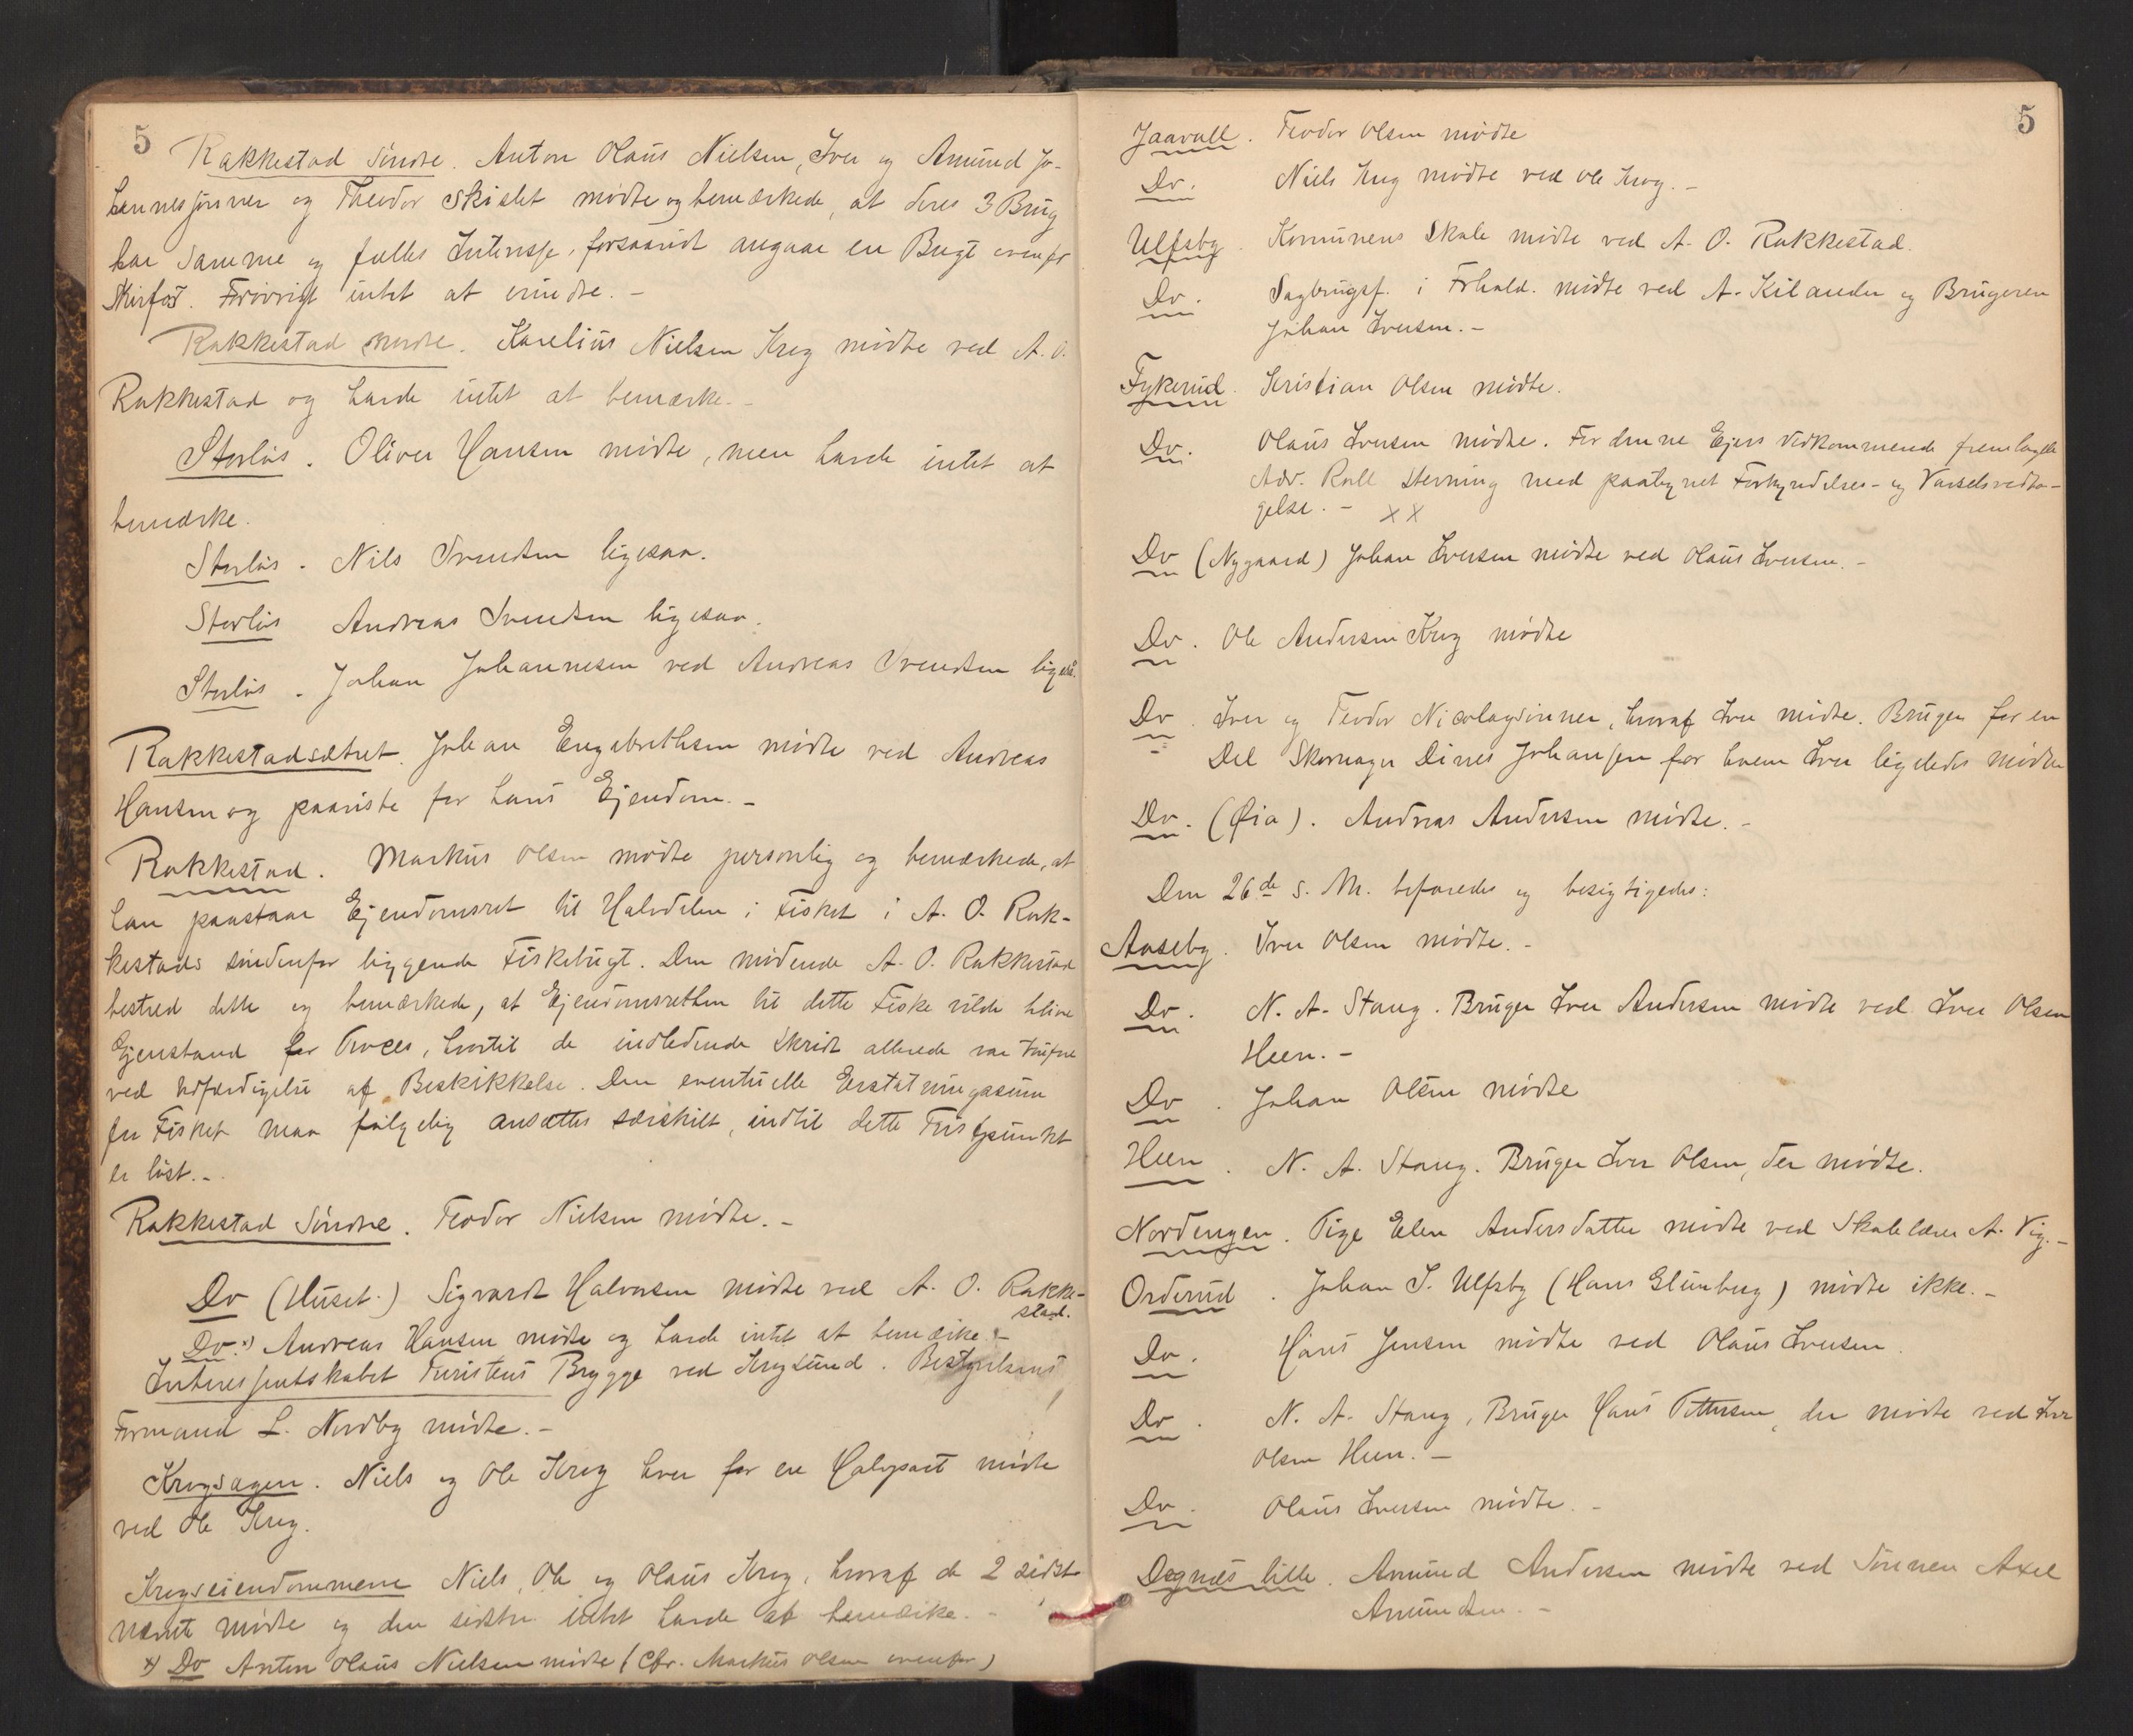 5
Rakkestad Søndre. Anton Olaus Nielsen, Iver og Amund Jo-
hannesønner og Theodor Skislet mødte og bemærkede, at deres 3 Brug
har samme og fælles Interesse, forsaavidt angaar en Bugt ovenfor
Forøvrigt intet at erindre. -
Rakkestad nordre. Karelius Nielsen Krog mødte ved A. O.
Rakkestad og havde intet at bemærke. -
Storløs. Oliver Hansen mødte, men havde intet at
bemærke.
Storløs - Nils Svendsen ligesaa.
Storløs Andreas Svendsen ligesaa.
Storløs - Johan Johannesen ved Andreas Svendsen ligesaa.
Rakkestadsætret. Johan Engebrethsen mødte ved Andreas
Hansen og paaviste for hans Ejendom. -
Rakkestad. Markus Olsen mødte personlig og bemærkede, at
han paastaar Ejendomsret til Halvdelen i Fisket i A. O. Rak-
kestads søndenfor liggende Fiskebugt. Den mødende A. O. Rakkestad
bestred dette og bemærkede, at Ejendomsretten til dette Fiske vilde blive
Gjenstand for Proces, hvortil de indledende Skridt allerede var trufne
ved Udfærdigelse af Beskikkelse. Den eventuelle Erstatningssum
for Fisket maa følgelig ansættes særskilt, indtil dette Tvistpunkt
er løst. -
Rakkestad Søndre. Teodor Nielsen mødte. -
Do (Huset.) Sigvardt Halvorsen mødte ved A. O. Rakke-
stad.
Do. x) Andreas Hansen mødte og havde intet at bemærke. -
Interessentskabet Turistens Brygge ved Krogsund. Bestyrelsens
Formand L. Nordby mødte. -
Krogsagen. Niels og Ole Krog hver for en Halvpart mødte
ved Ole Krog.
Krogseiendommene Niels, Ole og Olaus Krog, hvoraf de 2 sidst-
nævnte mødte og den sidste intet havde at bemærke. -
x) Do Anton Olaus Nielsen mødte (Cfr. Markus Olsen ovenfor)
5
Jaavall. Teodor Olsen mødte
Do. Niels Krog mødte ved Ole Krog. -
Ulfsby. Komunens Skole mødte ved A. O. Rakkestad.
Do. Sagbrugsf. i Frhald. mødte ved A. Kilander og Brugeren
Johan Iversen. -
Fykerud. Kristian Olsen mødte.
Do. Olaus Iversen mødte. For denne Ejers Vedkommende fremlagde
Adv. Roll Stevning med paategnet Forkyndelses- og Varselsvedta-
gelse. - x x
Do (Nygaard) Johan Iversen mødte ved Olaus Iversen. -
Do. Ole Andersen Krog mødte
Do. Iver og Teodor Nicolaysønner, hvoraf Iver mødte. Bruger for en
Del Skomager Dines Johansen for hvem Iver ligeledes mødte
Do. (Øia). Andreas Andersen mødte. -
Den 26de s. M. befaredes og besigtigedes:
Aaseby. Iver Olsen mødte. -
Do. N. A. Stang. Bruger Iver Andersen mødte ved Iver Olsen
Heen. -
Do. Johan Olsen mødte
Heen. N. A. Stang. Bruger Iver Olsen, der mødte.
Nordengen. Pige Elen Andersdatter mødte ved Skolelærer A. Vig. -
Orderud. Johan S. Ulfsby (Hans Glünberg) mødte ikke. -
Do. Hans Jensen mødte ved Olaus Iversen.
Do. N. A. Stang, Bruger Hans Pettersen, der mødte ved Iver
Olsen Heen. -
Do. Olaus Iversen mødte. -
Degnæs lille. Amund Andersen mødte ved Sønnen Axel
Amundsen. -